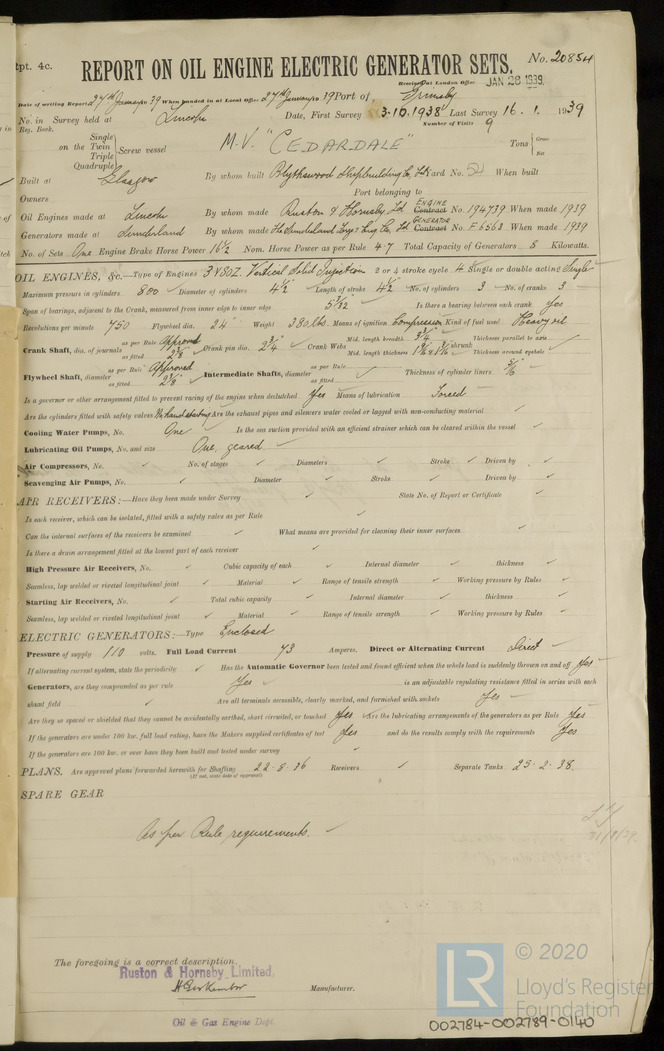 Rpt. 4c.
REPORT ON OIL ENGINE ELECTRIC GENERATOR SETS.
No. 20854
Received at London Office JAN 28 1939
Date of writing Report 27th January 1939 When handed in at Local Office 27th January 19 Port of Grimsby
No. in Survey held at Lincoln Date, First Survey 3.10.1938 Last Survey 16.1.1939
Reg. Book. Number of Visits 9
Single
on the Twin
Triple
Quadruple
Screw vessel M.V. "CEDARDALE" Tons Gross Net
Built at Glasgow By whom built Blythswood Shipbuilding Co. Ltd Yard No. 52 When built
Owners Port belonging to
Oil Engines made at Lincoln By whom made Ruston & Hornsby Ld ENGINE Contract No. 194739 When made 1939
Generators made at Sunderland By whom made The Sunderland Forge & Eng. Co. Ld GENERATOR Contract No. F6563 When made 1939
No. of Sets One Engine Brake Horse Power 16½ Nom. Horse Power as per Rule 4.7 Total Capacity of Generators 8 Kilowatts.
OIL ENGINES, &c.—Type of Engines 3VSOZ. Vertical Solid Injection 2 or 4 stroke cycle 4 Single or double acting Single
Maximum pressure in cylinders 800 Diameter of cylinders 4½ Length of stroke 4½ No. of cylinders 3 No. of cranks 3
Span of bearings, adjacent to the Crank, measured from inner edge to inner edge 5 3/32 Is there a bearing between each crank Yes
Revolutions per minute 750 Flywheel dia. 24" Weight 380 lbs. Means of ignition Compression Kind of fuel used Heavy oil
Crank Shaft, dia. of journals as per Rule Approved as fitted 2⅞ Crank pin dia. 2¾ Crank Webs Mid. length breadth 3¾ Mid. length thickness shrunk Thickness parallel to axis Thickness around eyehole
Flywheel Shaft, diameter as per Rule Approved as fitted 2⅞ Intermediate Shafts, diameter as per Rule as fitted Thickness of cylinder liners 5/16
Is a governor or other arrangement fitted to prevent racing of the engine when declutched Yes Means of lubrication Forced
Are the cylinders fitted with safety valves No, hand starting Are the exhaust pipes and silencers water cooled or lagged with non-conducting material
Cooling Water Pumps, No. One Is the sea suction provided with an efficient strainer which can be cleared within the vessel
Lubricating Oil Pumps, No. and size One, geared
Air Compressors, No. No. of stages Diameters Stroke Driven by
Scavenging Air Pumps, No. Diameter Stroke Driven by
AIR RECEIVERS:—Have they been made under Survey State No. of Report or Certificate
Is each receiver, which can be isolated, fitted with a safety valve as per Rule
Can the internal surfaces of the receivers be examined What means are provided for cleaning their inner surfaces
Is there a drain arrangement fitted at the lowest part of each receiver
High Pressure Air Receivers, No. Cubic capacity of each Internal diameter thickness
Seamless, lap welded or riveted longitudinal joint Material Range of tensile strength Working pressure by Rules
Starting Air Receivers, No. Total cubic capacity Internal diameter thickness
Seamless, lap welded or riveted longitudinal joint Material Range of tensile strength Working pressure by Rules
ELECTRIC GENERATORS:—Type Enclosed
Pressure of supply 110 volts. Full Load Current 73 Amperes. Direct or Alternating Current Direct
If alternating current system, state the periodicity Has the Automatic Governor been tested and found efficient when the whole load is suddenly thrown on and off Yes
Generators, are they compounded as per rule Yes is an adjustable regulating resistance fitted in series with each
shunt field Are all terminals accessible, clearly marked, and furnished with sockets Yes
Are they so spaced or shielded that they cannot be accidentally earthed, short circuited, or touched Yes Are the lubricating arrangements of the generators as per Rule Yes
If the generators are under 100 kw. full load rating, have the Makers supplied certificates of test Yes and do the results comply with the requirements Yes
If the generators are 100 kw. or over have they been built and tested under survey
PLANS. Are approved plans forwarded herewith for Shafting 22.8.36 Receivers Separate Tanks 25.2.38.
(If not, state date of approval)
SPARE GEAR
As per Rule requirements.
The foregoing is a correct description,
Ruston & Hornsby Limited,
Manufacturer.
Oil & Gas Engine Dept.
LR
© 2020
Lloyd's Register
Foundation
002784-002789-0140